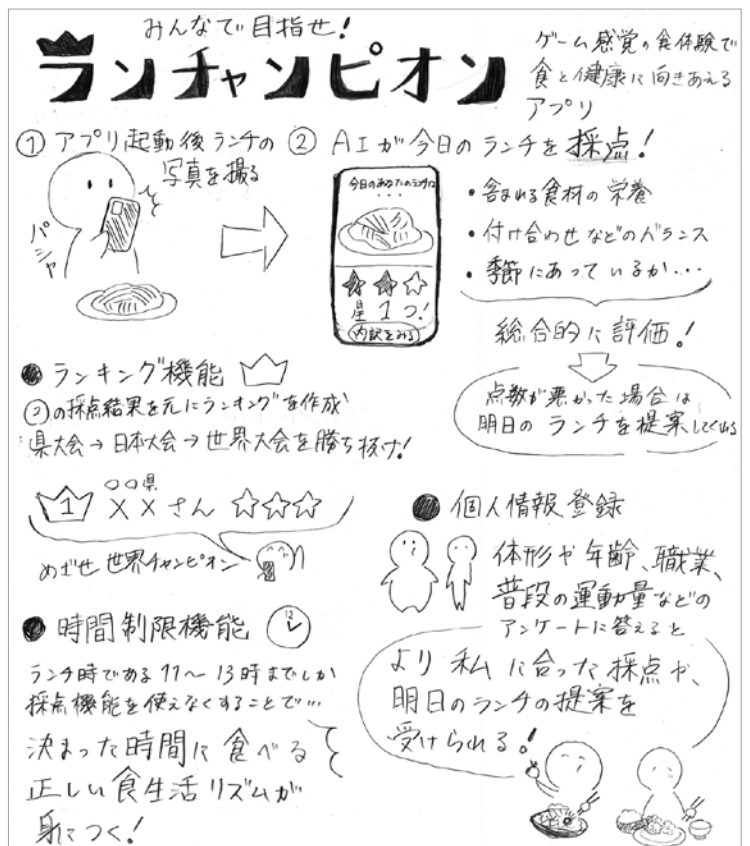 みんなで目指せ!
ランチャンピオン
ゲーム感覚の食体験で
食と健康に向きあえる
アプリ
① アプリ起動後ランチの
写真を撮る
パシャ
② AIが今日のランチを採点!
今日のあなたのランチは
・・・
星1つ!
内訳をみる
・含まれる食材の栄養
・付け合わせなどのバランス
・季節にあっているか・・・
総合的に評価!
点数が悪かった場合は
明日のランチを提案してくれる
●ランキング機能
②の採点結果を元にランキングを作成
県大会→日本大会→世界大会を勝ち抜け!
1 ○○県
××さん ☆☆☆
めざせ世界チャンピオン
●時間制限機能
12
ランチ時である11〜13時までしか
採点機能を使えなくすることで…
決まった時間に食べる
正しい食生活リズムが
身につく!
●個人情報登録
体形や年齢、職業、
普段の運動量などの
アンケートに答えると
より私に合った採点や、
明日のランチの提案を
受けられる!